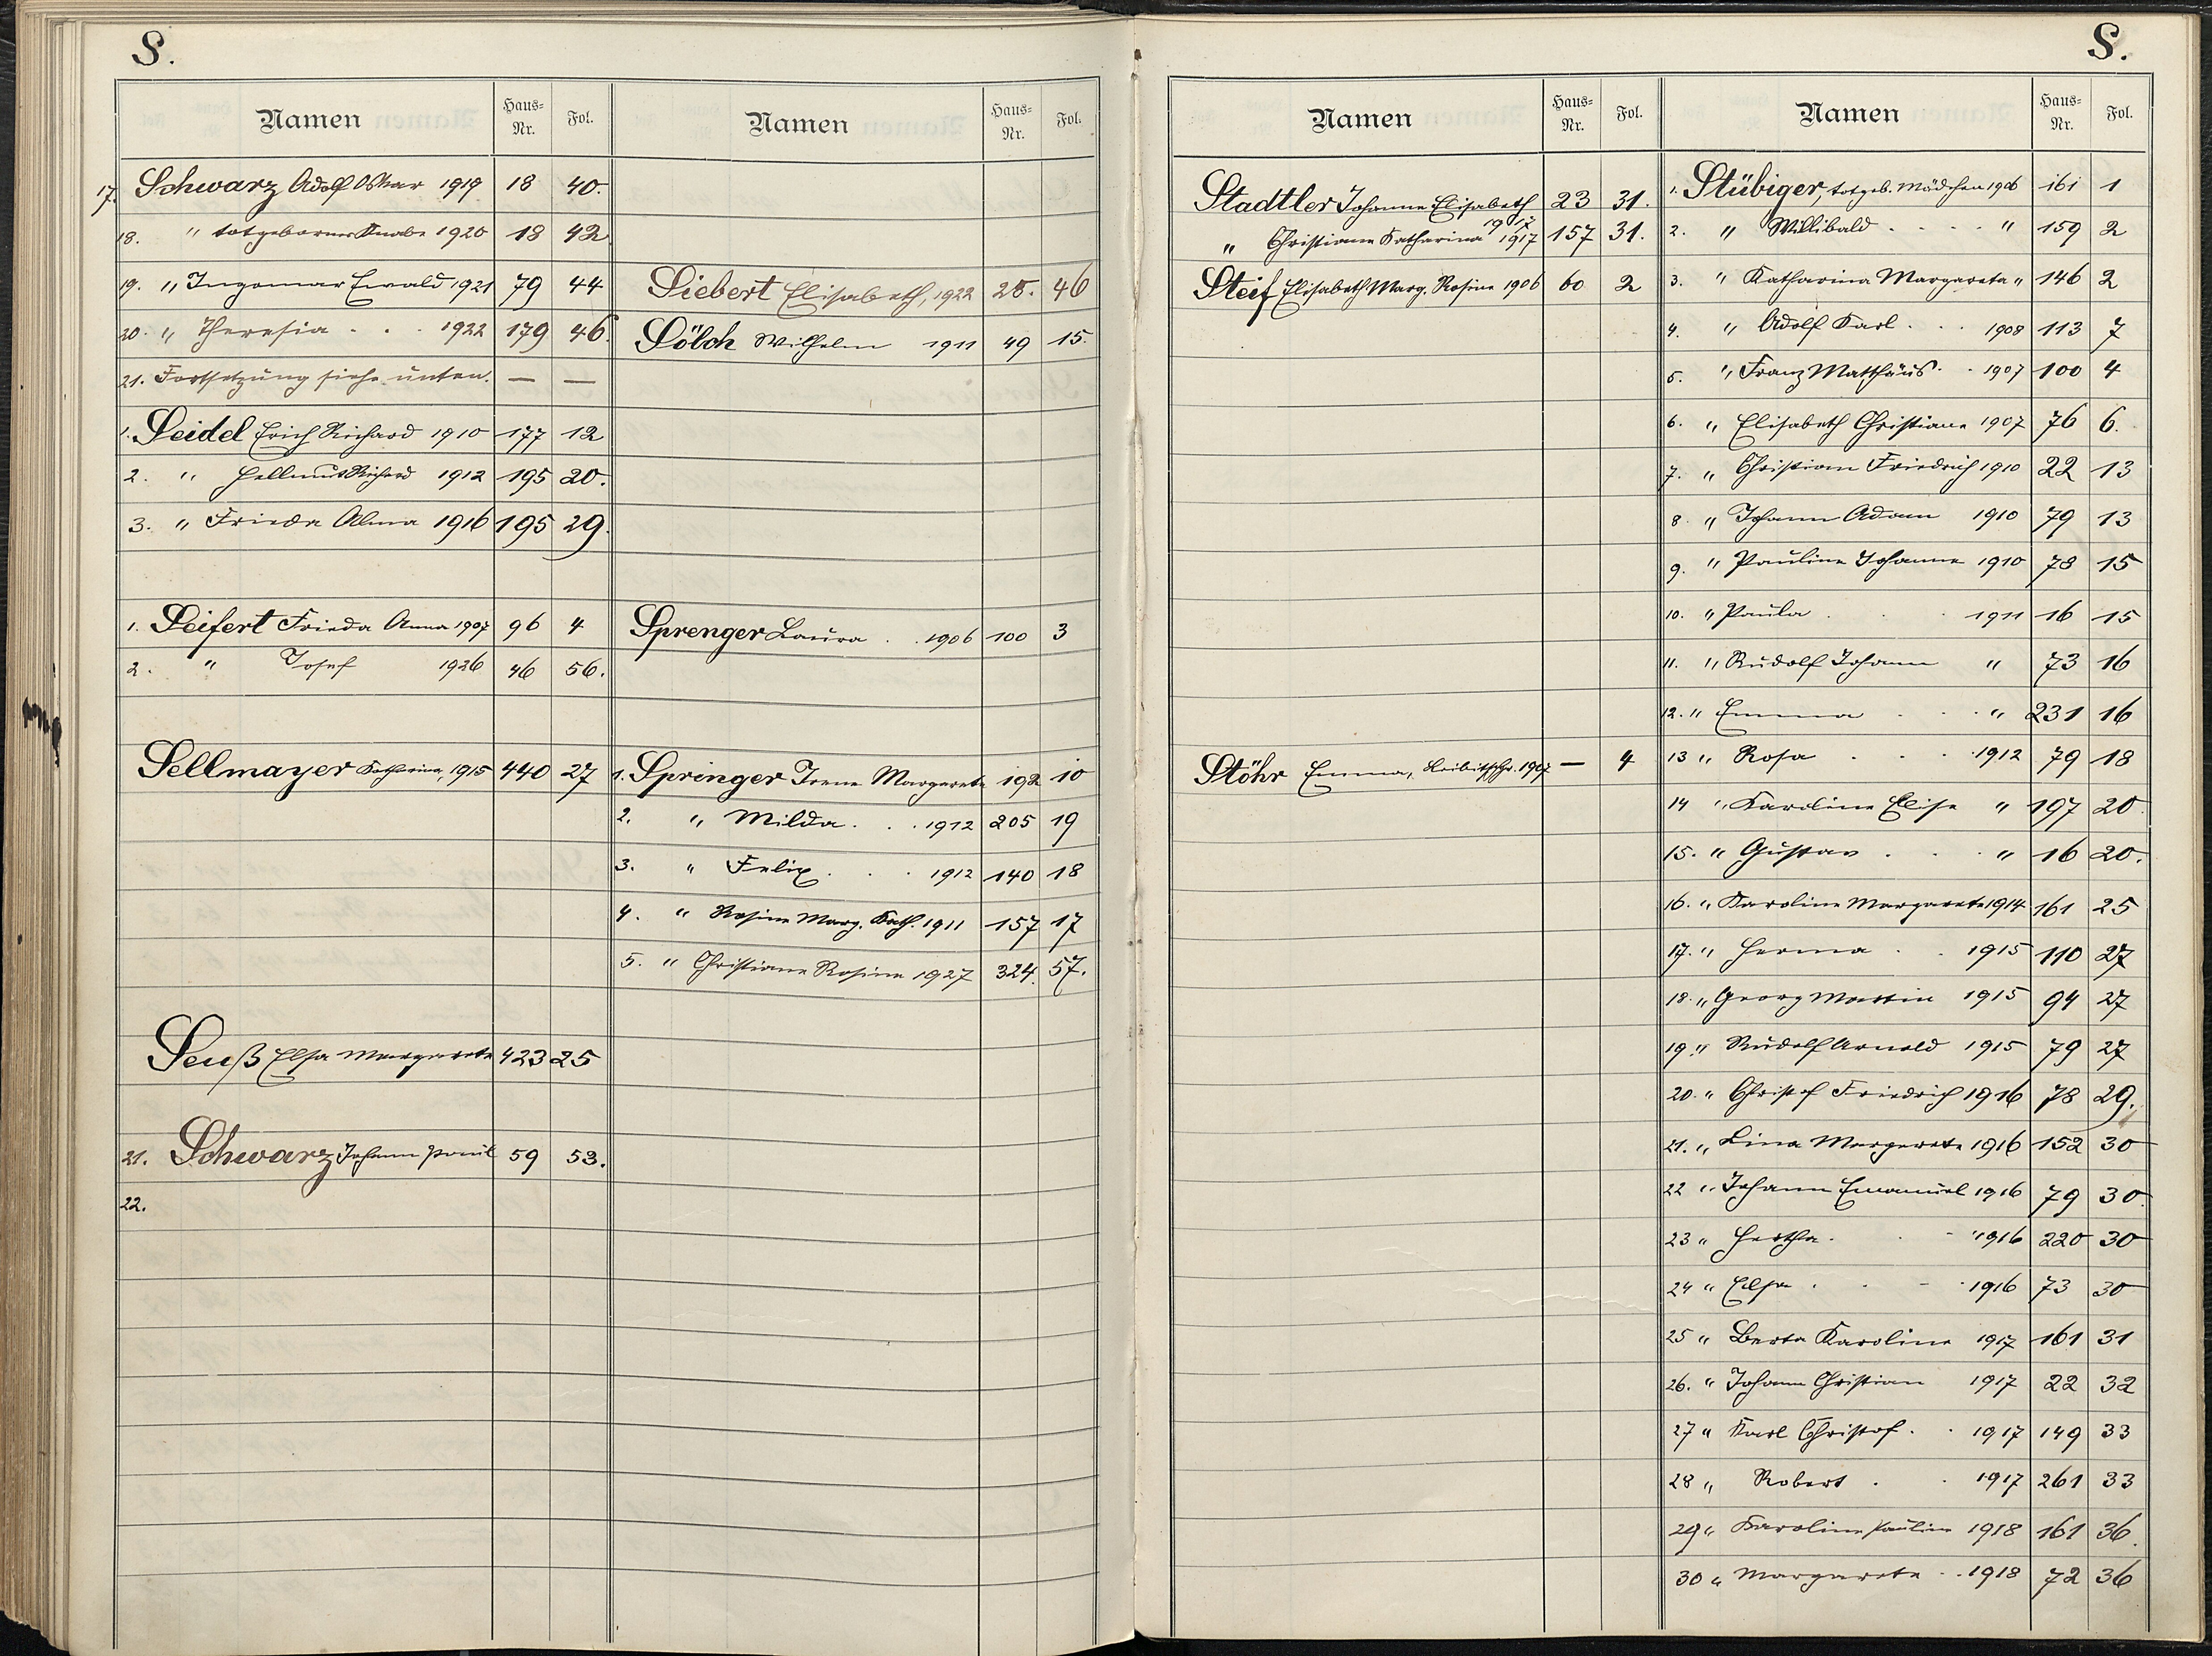 S.
Namen Haus-Nr. Fol.
17. Schwarz Adolf Oskar 1919 18 40.
18. " totgeborner Knabe 1920 18 42
19. " Ingomar Ewald 1921 79 44
20. " Theresia . . . 1922 179 46.
21. Fortsetzung siehe unten. — —
1. Seidel Erich Richard 1910 177 12
2. " Hellmut Richard 1912 195 20.
3. " Frieda Alma 1916 195 29.
1. Seifert Frieda Anna 1907 96 4
2. " Josef 1926 46 56.
Sellmayer Katharina, 1915 440 27
Seuß Elsa Margareta 423 25
21. Schwarz Johann Paul 59 53.
22.
Namen Haus-Nr. Fol.
Siebert Elisabeth, 1922 25. 46
Sölch Wilhelm 1911 49 15.
Sprenger Laura . . 1906 100 3
1. Springer Irene Margareta 192 10
2. " Milda . . . 1912 205 19
3. " Felix . . . 1912 140 18
4. " Rosine Marg. Kath. 1911 157 17
5. " Christiane Rosine 1927 324. 57.
S.
Namen Haus-Nr. Fol.
Stadtler Johanne Elisabeth 1917 23 31.
" Christiane Katharina 1917 157 31.
Steif Elisabeth Marg. Rosine 1906 60 2
Stöhr Emma, 1907 — 4
Namen Haus-Nr. Fol.
1. Stübiger, totgeb. Mädchen 1906 161 1
2. " Willibald . . . . " 159 2
3. " Katharina Margareta " 146 2
4. " Adolf Karl . . . 1908 113 7
5. " Franz Matthäus . . 1907 100 4
6. " Elisabeth Christiane 1907 76 6.
7. " Christian Friedrich 1910 22 13
8. " Johann Adam 1910 79 13
9. " Pauline Johanne 1910 78 15
10. " Paula . . 1911 16 15
11. " Rudolf Johann " 73 16
12. " Emma . . . " 231 16
13 " Rosa . . . 1912 79 18
14 " Karoline Elise " 197 20.
15. " Gustav . . . " 16 20.
16. " Karoline Margareta 1914 161 25
17. " Herma . . 1915 110 27
18. " Georg Martin 1915 94 27
19. " Rudolf Arnold 1915 79 27
20. " Christof Friedrich 1916 78 29.
21. " Lina Margareta 1916 152 30
22 " Johann Emanuel 1916 79 30.
23 " Hertha . . - 1916 220 30
24 " Elsa . . - . 1916 73 30
25 " Berta Karoline 1917 161 31
26. " Johann Christian 1917 22 32
27 " Karl Christof . . 1917 149 33
28 " Robert . . 1917 261 33
29 " Karoline Pauline 1918 161 36.
30 " Margareta . . 1918 72 36